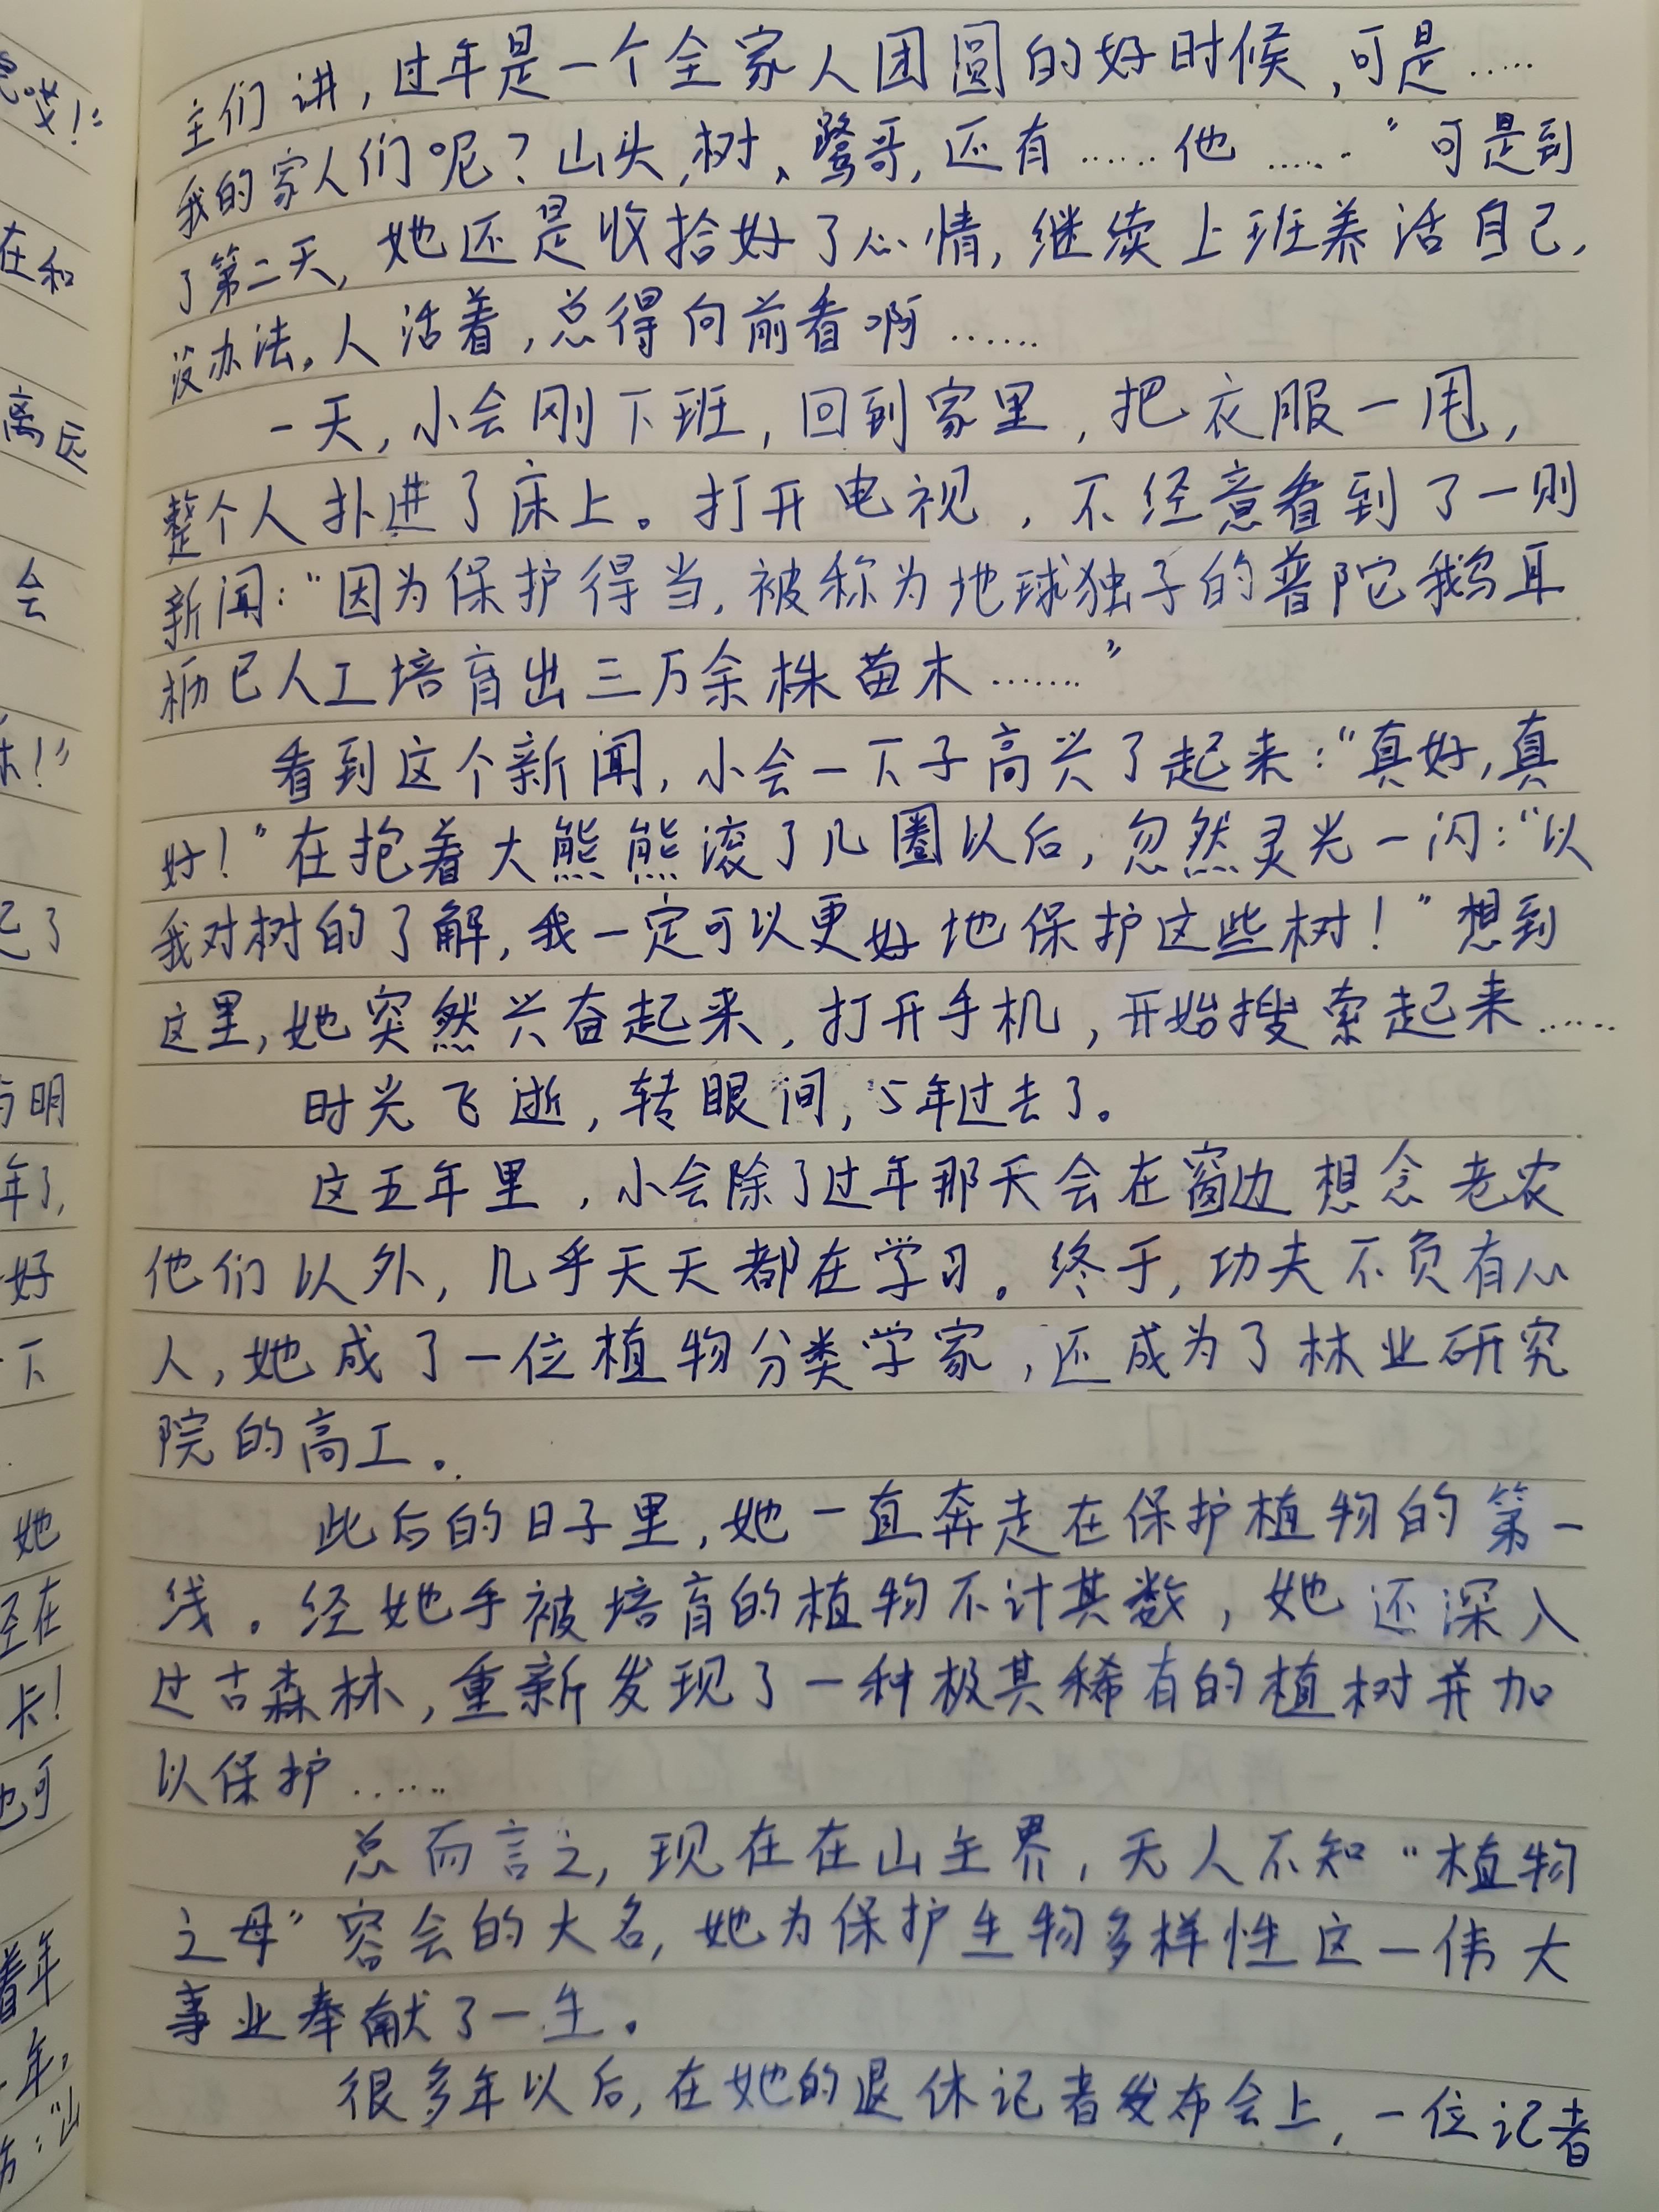 主们讲，过年是一个全家人团圆的好时候，可是……
我的家人们呢？山头，树、鹭哥，还有……他……”可是到
了第二天，她还是收拾好了心情，继续上班养活自己，
没办法。人活着，总得向前看啊……
一天，小会刚下班，回到家里，把衣服一甩，
整个人扑进了床上。打开电视，不经意看到了一则
新闻：“因为保护得当，被称为地球独子的普陀鹅耳
枥已人工培育出三万余株苗木……”
看到这个新闻，小会一下子高兴了起来：“真好，真
好！”在抱着大熊熊滚了几圈以后，忽然灵光一闪：“以
我对树的了解，我一定可以更好地保护这些树！”想到
这里，她突然兴奋起来，打开手机，开始搜索起来……
时光飞逝，转眼间，5年过去了。
这五年里，小会除了过年那天会在窗边想念老农
他们以外，几乎天天都在学习。终于，功夫不负有心
人，她成了一位植物分类学家，还成为了林业研究
院的高工。
此后的日子里，她一直奔走在保护植物的第一
线。经她手被培育的植物不计其数，她还深入
过古森林，重新发现了一种极其稀有的植树并加
以保护……
总而言之，现在在山主界，无人不知“植物
之母”容会的大名，她为保护生物多样性这一伟大
事业奉献了一生。
很多年以后，在她的退休记者发布会上，一位记者
在和
离远
会
起了
与明
年了，
好
下
她
至在
卡！
也可
着年